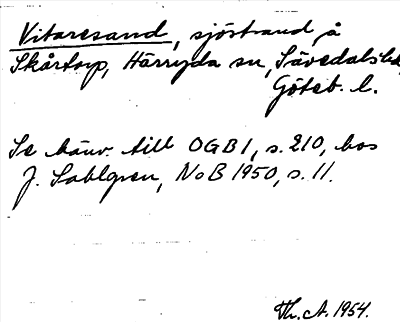 Vitaresand, sjöstrand å
Skårtorp, Härryda sn, Sävedals hd,
Göteb. l.
Se hänv. till OGB 1, s. 210, hos
J. Sahlgren, NoB 1950, s. 11.
Th. A. 1954.